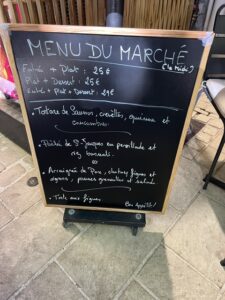 MENU DU MARCHÉ
(le midi)
Entrée + Plat : 25€
Plat + Dessert : 25€
Entrée + Plat + Dessert : 29€
• Tartare de Saumon, crevettes, quinoa et
concombre.
• de St-Jacques en persillade et
riz basmati.
ou
• Araignée de Porc, chutney figues et
oignons, pommes grenailles et salade
• Tarte aux figues.
Bon Appétit!